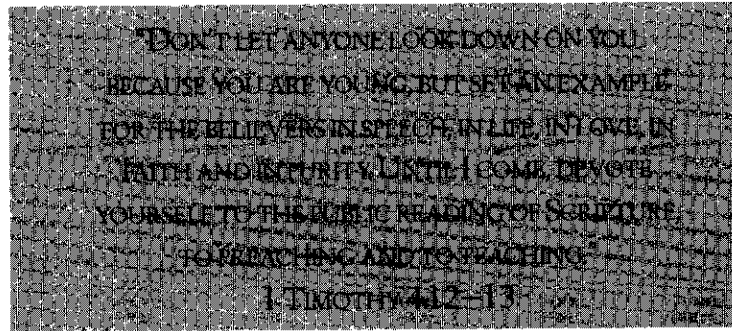 "DON'T LET ANYONE LOOK DOWN ON YOU
BECAUSE YOU ARE YOUNG, BUT SET AN EXAMPLE
FOR THE BELIEVERS IN SPEECH, IN LIFE, IN LOVE, IN
FAITH AND IN PURITY. UNTIL I COME, DEVOTE
YOURSELF TO THE PUBLIC READING OF SCRIPTURE,
TO PREACHING AND TO TEACHING."
1 TIMOTHY 4:12–13